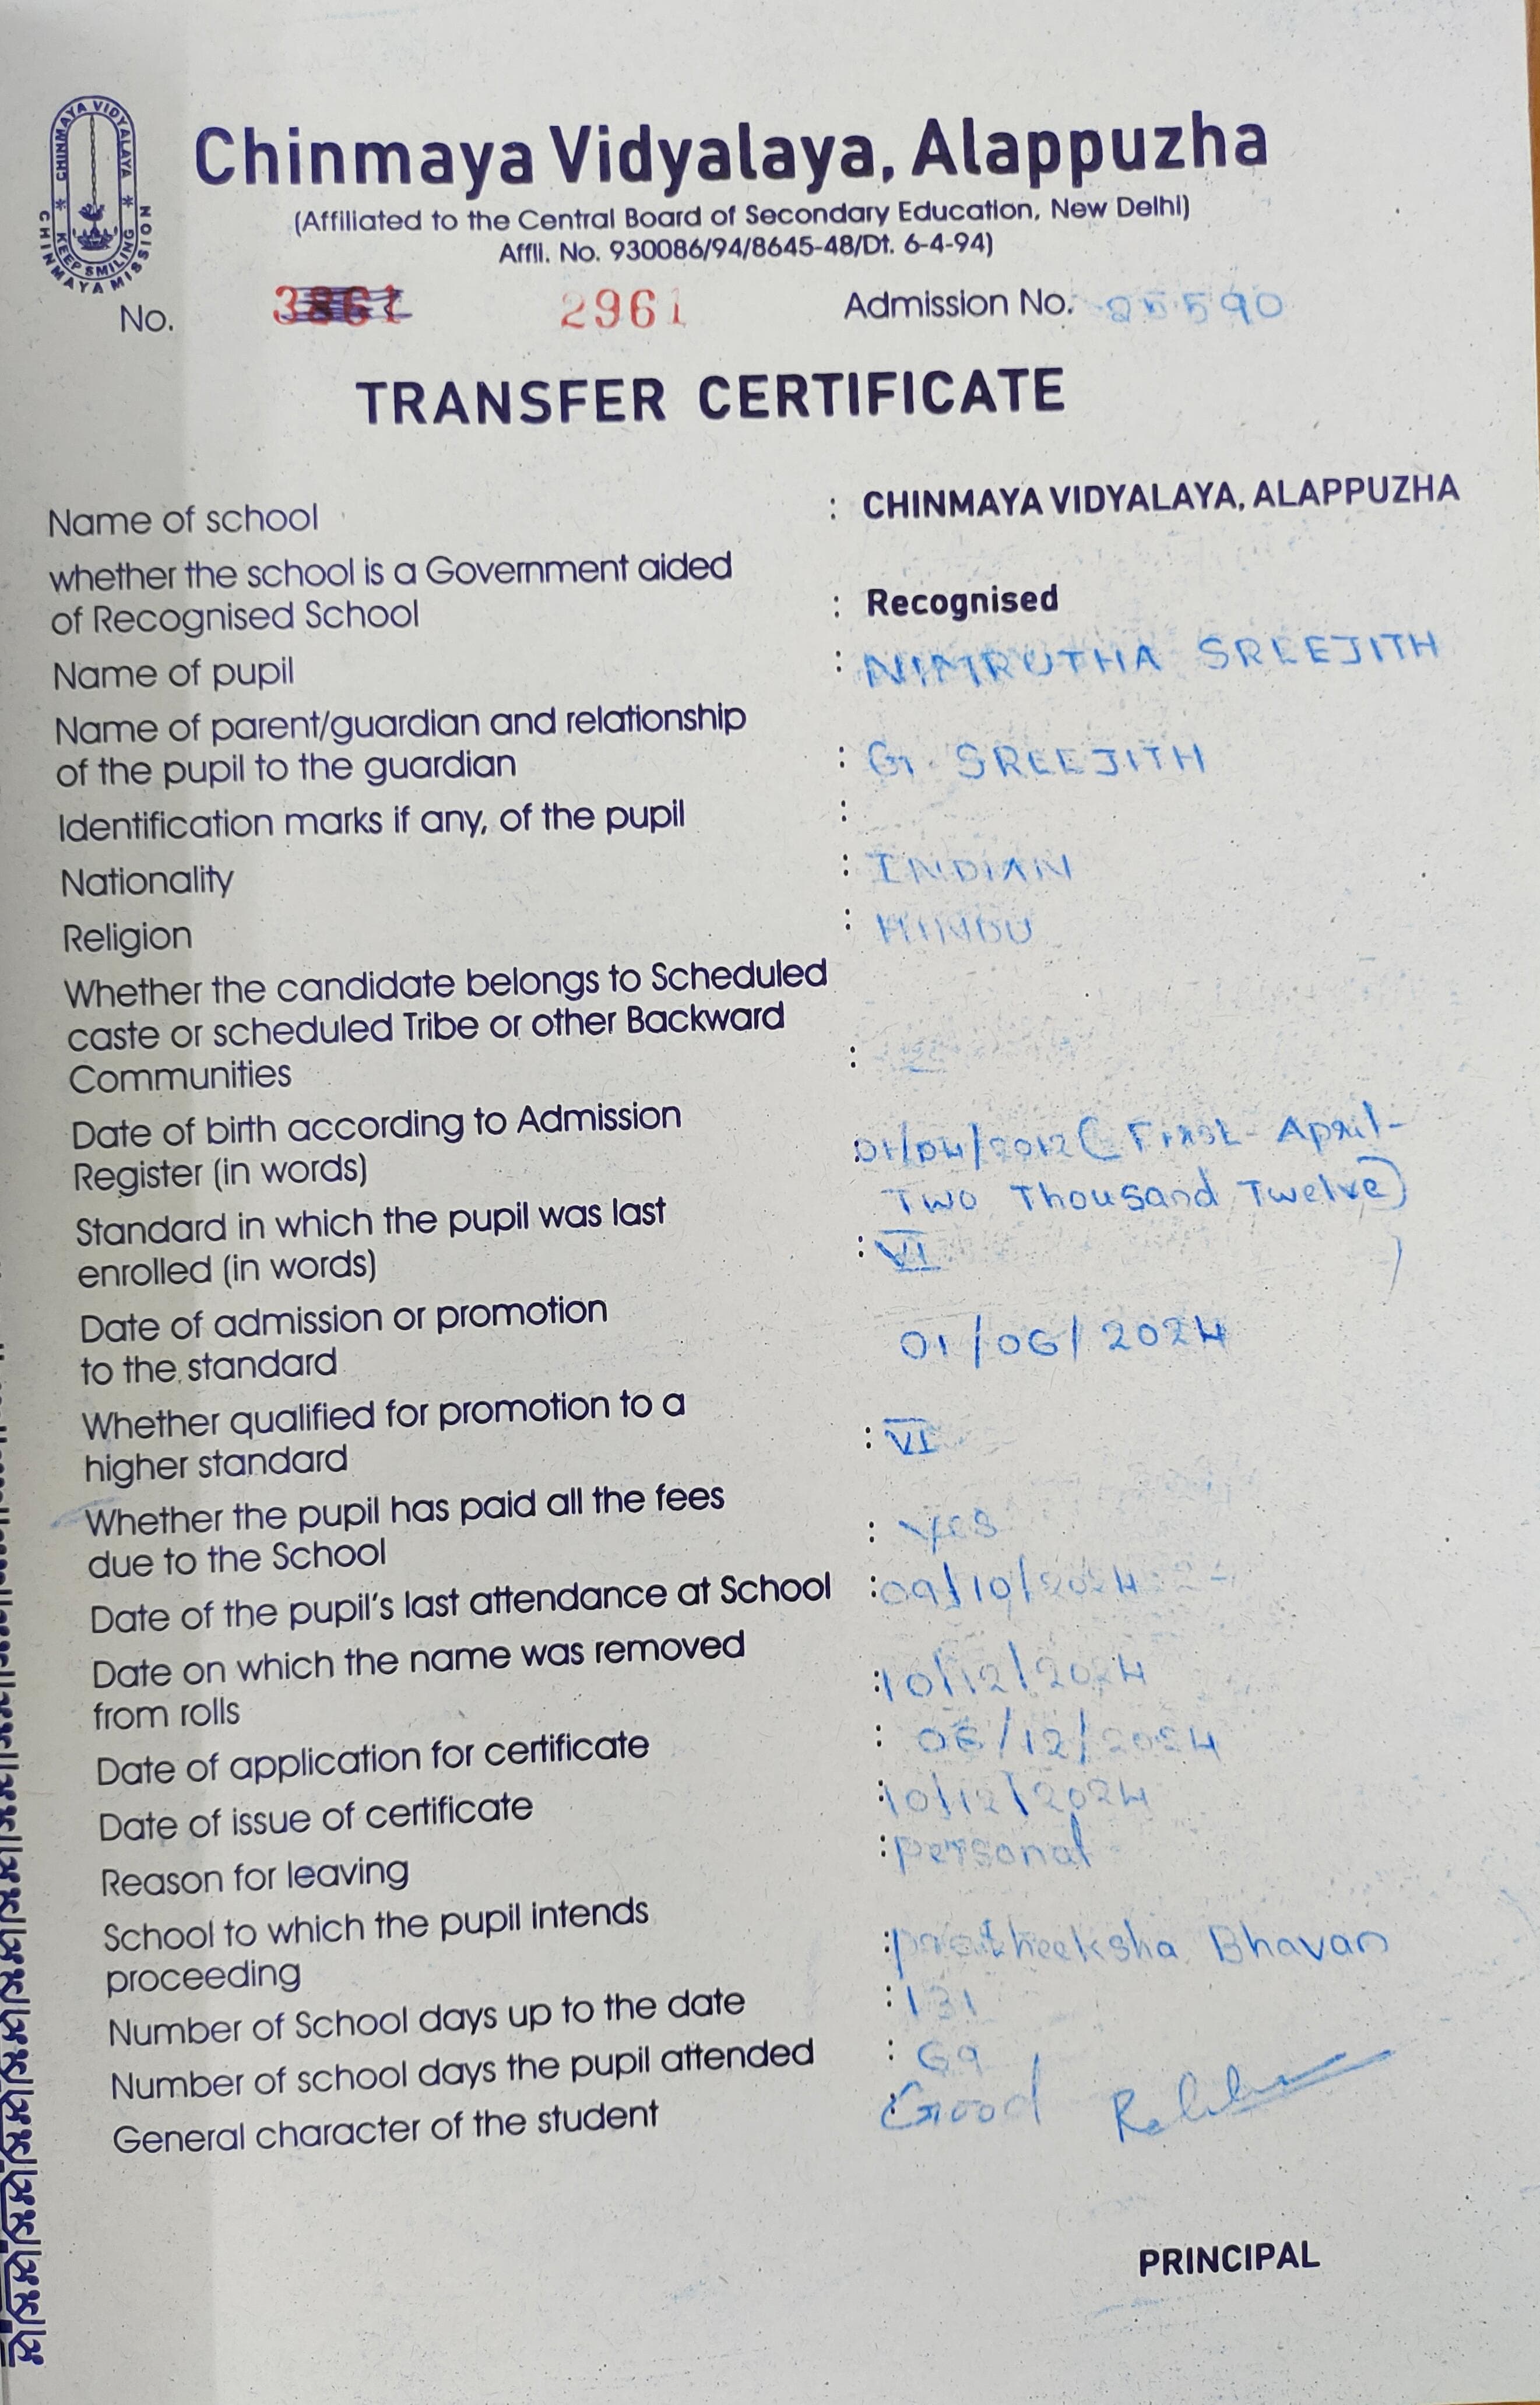 CHINMAYA VIDYALAYA
KEEP SMILING
CHINMAYA MISSION
Chinmaya Vidyalaya, Alappuzha
(Affiliated to the Central Board of Secondary Education, New Delhi)
Affli. No. 930086/94/8645-48/Dt. 6-4-94)
No. 2961 Admission No.
TRANSFER CERTIFICATE
Name of school : CHINMAYA VIDYALAYA, ALAPPUZHA
whether the school is a Government aided
of Recognised School : Recognised
Name of pupil : NIMRUTHA SREEJITH
Name of parent/guardian and relationship
of the pupil to the guardian : G. SREEJITH
Identification marks if any, of the pupil :
Nationality : INDIAN
Religion : HINDU
Whether the candidate belongs to Scheduled
caste or scheduled Tribe or other Backward
Communities :
Date of birth according to Admission : 01/04/2012 (First- April-
Register (in words) Two Thousand Twelve)
Standard in which the pupil was last
enrolled (in words) : VI
Date of admission or promotion
to the standard 01/06/2024
Whether qualified for promotion to a
higher standard : VI
Whether the pupil has paid all the fees
due to the School : Yes
Date of the pupil's last attendance at School : 09/10/2024
Date on which the name was removed
from rolls : 10/12/2024
Date of application for certificate : 06/12/2024
Date of issue of certificate : 10/12/2024
Reason for leaving : personal
School to which the pupil intends
proceeding : pratheeksha Bhavan
Number of School days up to the date : 131
Number of school days the pupil attended : 69
General character of the student : Good
PRINCIPAL